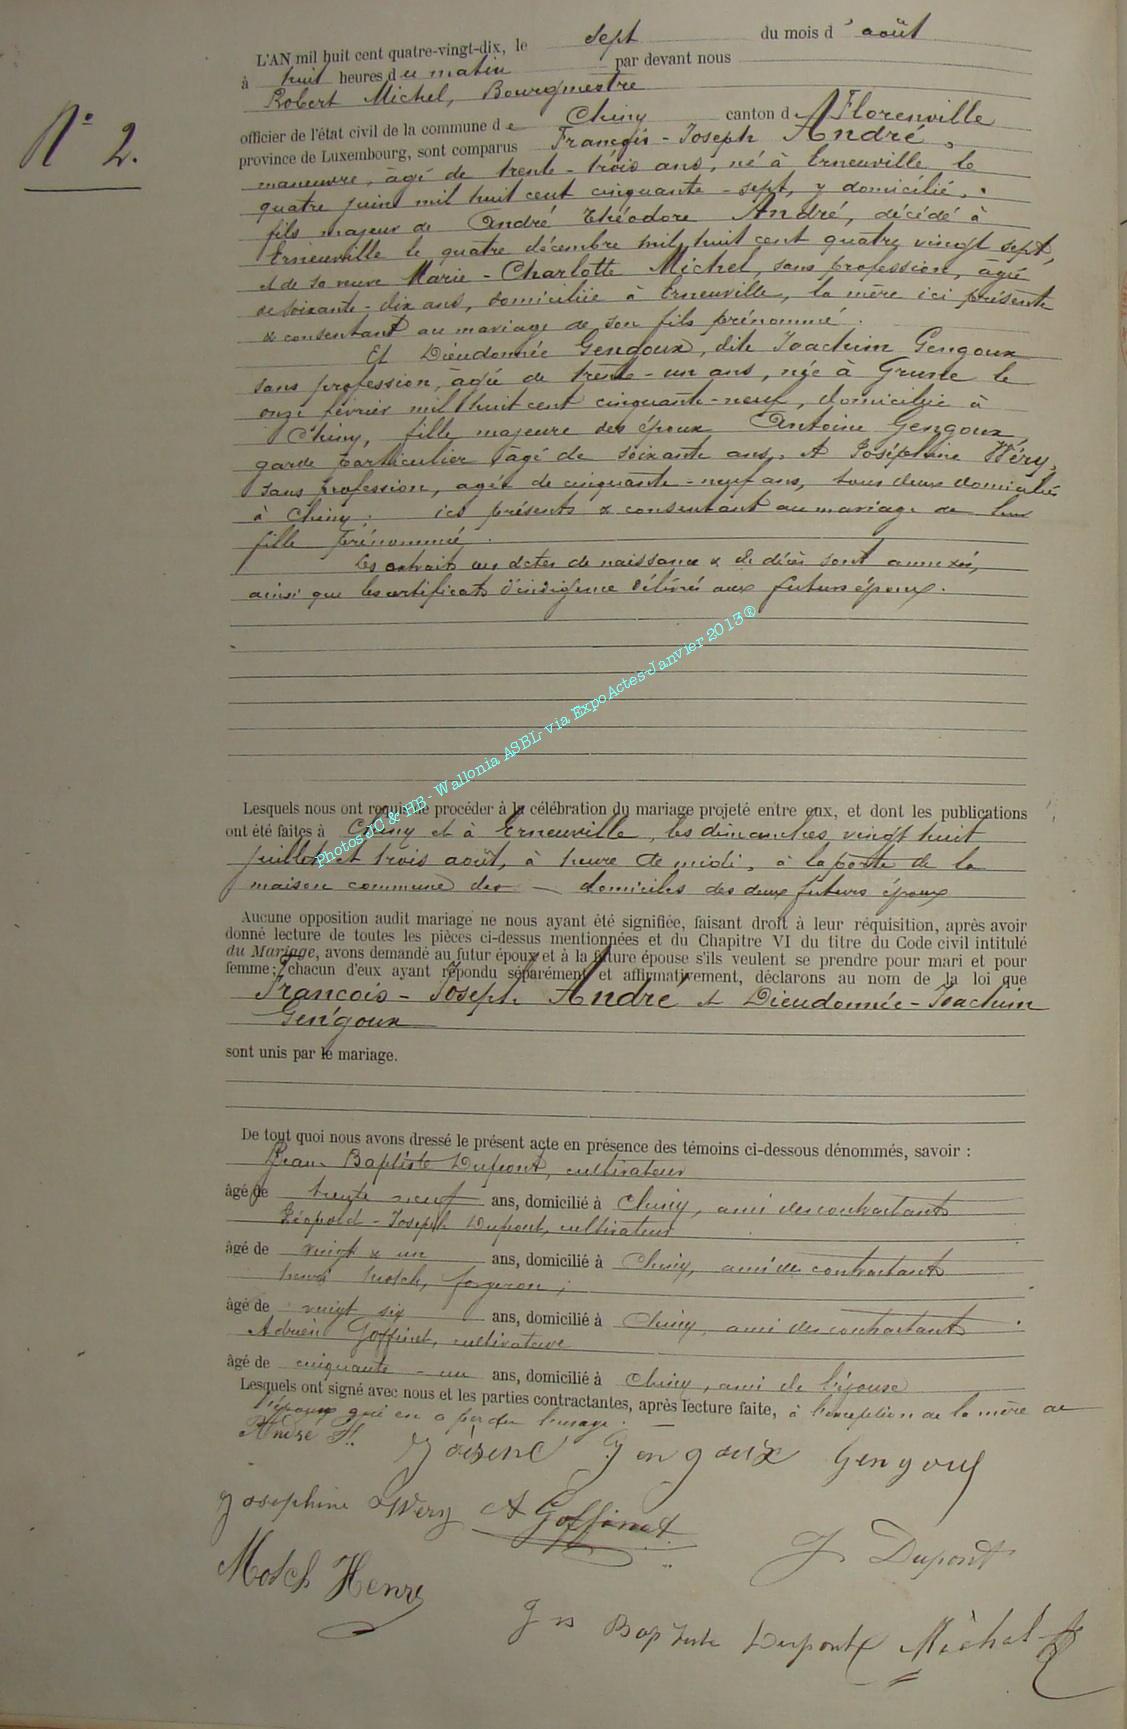 N° 2.
L'AN mil huit cent quatre-vingt-dix, le sept du mois d'août
à huit heures du matin par devant nous
Robert Michel, Bourgmestre
officier de l'état civil de la commune de Chiny canton de Florenville
province de Luxembourg, sont comparus François-Joseph André,
maneuvre, âgé de trente-trois ans, né à Erneuville le
quatre juin mil huit cent cinquante-sept, y domicilié,
fils majeur de André Théodore André, décédé à
Erneuville le quatre décembre mil huit cent quatre vingt sept,
et de sa veuve Marie-Charlotte Michel, sans profession, âgée
de soixante-dix ans, domiciliée à Erneuville, la mère ici présente
& consentant au mariage de son fils prénommé.
Et Dieudonnée Gengoux, dite Joachim Gengoux
sans profession, âgée de trente-un ans, née à Grune le
onze février mil huit cent cinquante-neuf, domiciliée à
Chiny, fille majeure des époux Antoine Gengoux
garde particulier, âgé de soixante ans, et Joséphine Wéry,
sans profession, agée de cinquante-neuf ans, tous deux domiciliés
à Chiny, ici présents & consentant au mariage de leur
fille prénommée.
Les extraits des actes de naissance & de décès sont annexés,
ainsi que les certificats d'indigence délivrés aux futurs époux.
Photos JC & HB - Wallonia ASBL via ExpoActes-Janvier 2013®
Lesquels nous ont requis de procéder à la célébration du mariage projeté entre eux, et dont les publications
ont été faites à Chiny et à Erneuville, les dimanches vingt huit
juillet et trois août, à heure de midi, à la porte de la
maison commune des domiciles des deux futurs époux
Aucune opposition audit mariage ne nous ayant été signifiée, faisant droit à leur réquisition, après avoir
donné lecture de toutes les pièces ci-dessus mentionnées et du Chapitre VI du titre du Code civil intitulé
du Mariage, avons demandé au futur époux et à la future épouse s'ils veulent se prendre pour mari et pour
femme; chacun d'eux ayant répondu séparément et affirmativement, déclarons au nom de la loi que
François-Joseph André et Dieudonnée-Joachim
Gengoux
sont unis par le mariage.
De tout quoi nous avons dressé le présent acte en présence des témoins ci-dessous dénommés, savoir :
Jean Baptiste Dupont, cultivateur
âgé de trente neuf ans, domicilié à Chiny, ami des contractants
Léopold-Joseph Dupont, cultivateur
âgé de vingt & un ans, domicilié à Chiny, ami des contractants
Henri Mosch, forgeron,
âgé de vingt six ans, domicilié à Chiny, ami des contractants
Adrien Goffinet, cultivateur
âgé de cinquante-un ans, domicilié à Chiny, ami de l'épouse
Lesquels ont signé avec nous et les parties contractantes, après lecture faite, à l'exception de la mère de
l'époux qui en a perdu l'usage.
André F. Gengoux Gengoux
Josephine Wery A Goffinet
J Dupont
Mosch Henri
Jn Baptiste Dupont Michel R